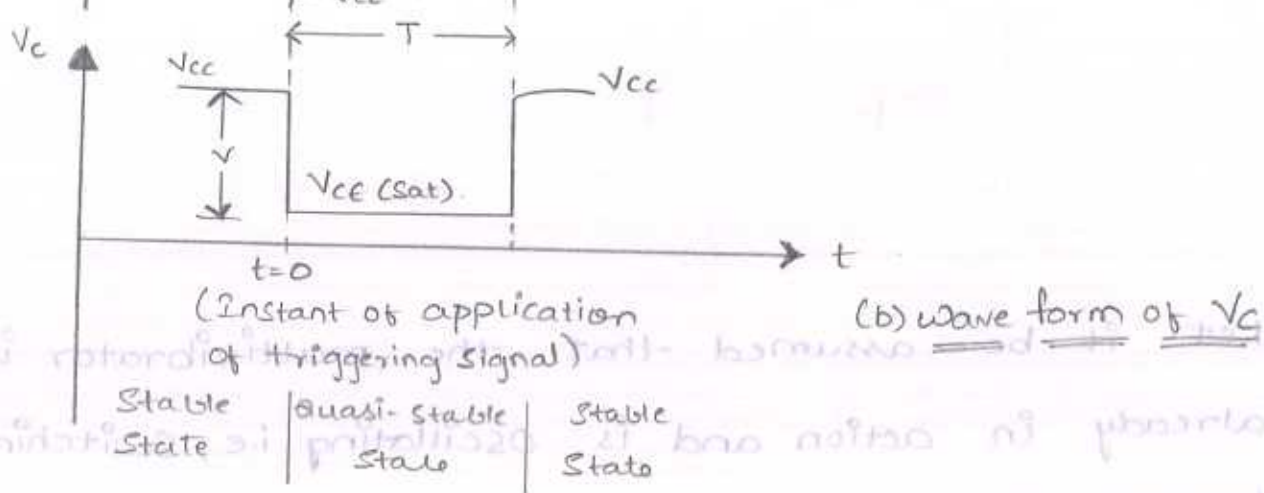 Vcc
T
Vc
Vcc
Vcc
V
VCE (Sat).
t=0
t
(Instant of application
of triggering signal)
(b) wave form of Vc
Stable
State
Quasi-Stable
State
Stable
State